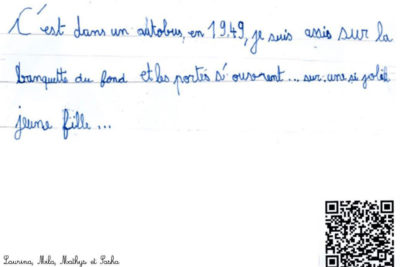 C'est dans un autobus, en 1949, je suis assis sur la
banquette du fond et les portes s'ouvrent... sur une si jolie
jeune fille...
Laurina, Mila, Mathys et Sasha